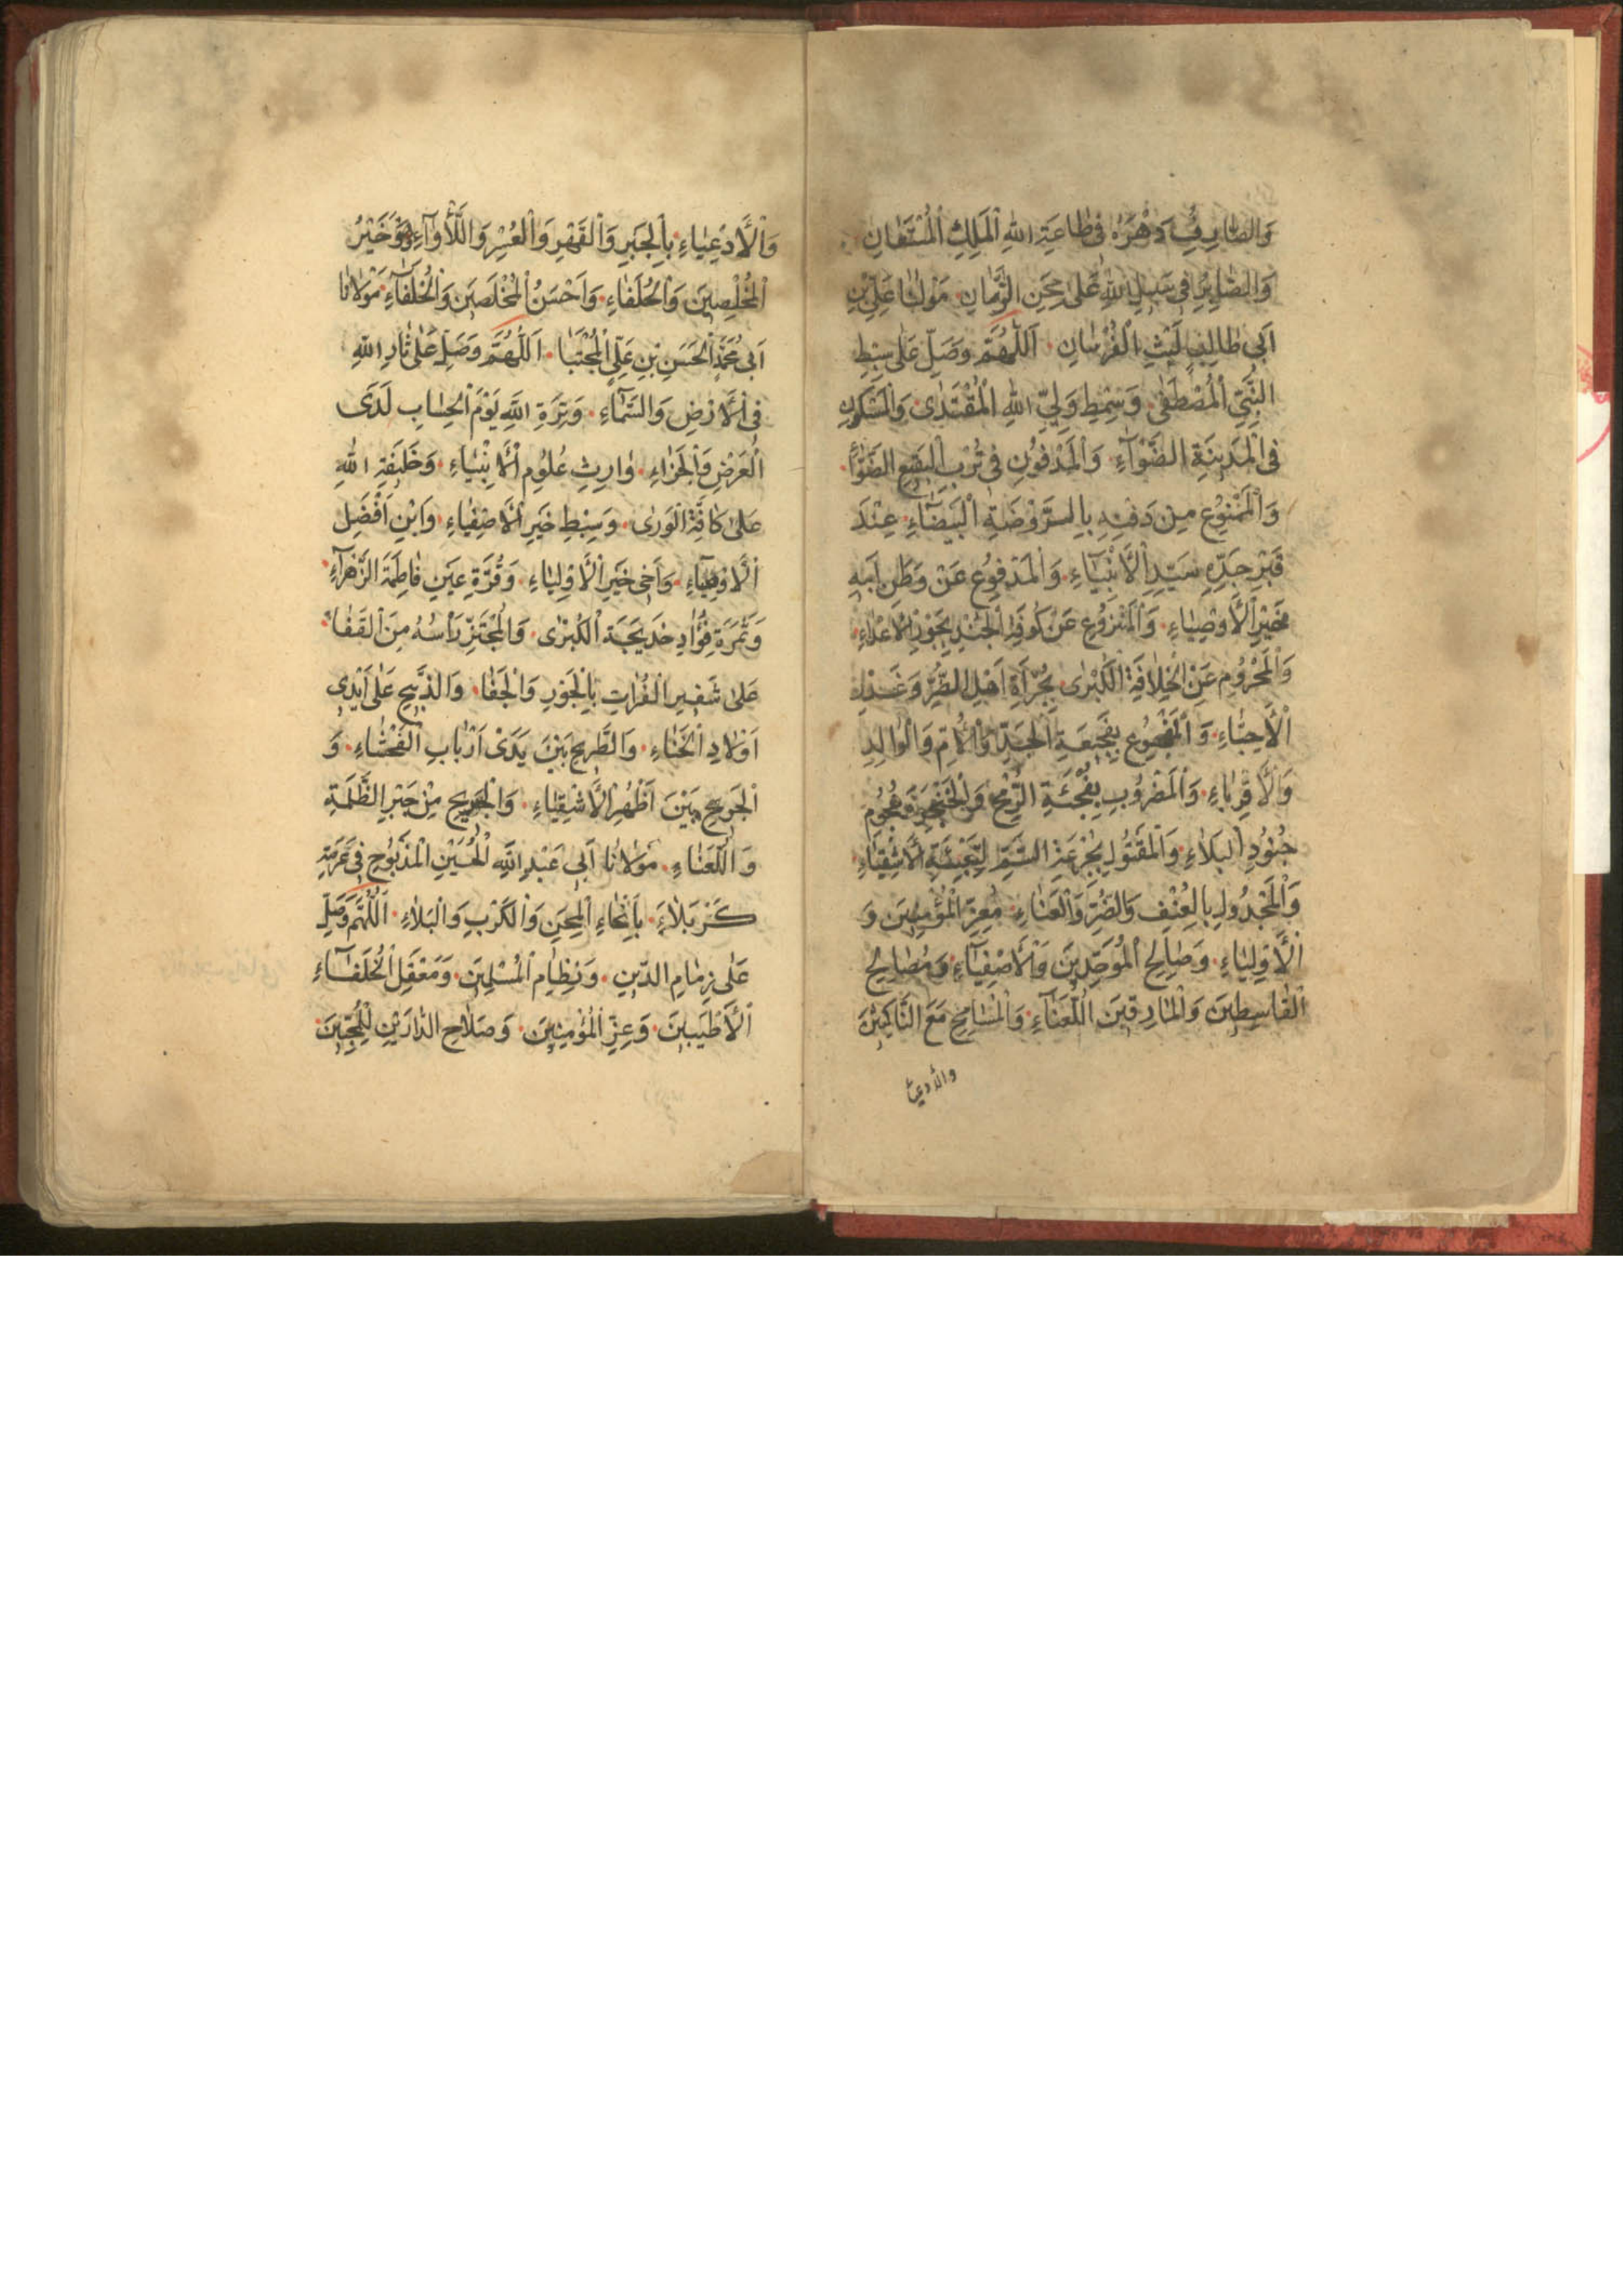 وَالصّٰارِفِ دَهْرَهُ فِى طٰاعَةِ اللهِ الْمَلِكِ الْمُسْتَعٰانِ
وَالصّٰابِرِ فِى سَبِيلِ اللهِ عَلىٰ مِحَنِ الزَّمٰانِ مَوْلٰانٰا عَلِىِّ بْنِ
اَبِى طٰالِبٍ لَيْثِ الْفُرْسٰانِ اَللّٰهُمَّ وَصَلِّ عَلىٰ سِبْطِ
النَّبِىِّ الْمُصْطَفٰى وَسِمْطِ وَلِىِّ اللهِ الْمُقْتَدٰى وَالْمَسْكُونِ
فِى الْمَدِينَةِ الضَّوْآءِ وَالْمَدْفُونِ فِى تُرْبِ الْبَقِيعِ
وَالْمَمْنُوعِ مِنْ دَفْنِهِ بِالرَّوْضَةِ الْبَيْضَآءِ عِنْدَ
قَبْرِ جَدِّهِ سَيِّدِ الْاَنْبِيٰٓاءِ وَالْمَدْفُوعِ عَنْ وَطَنِ اَبِيهِ
خَيْرِ الْاَوْصِيٰاءِ وَالْمَنْزُوعِ عَنْ كُوفَةِ الْجُنْدِ بِجَوْرِ الْاَعْدٰاءِ
وَالْمَحْرُومِ عَنِ الْخِلٰافَةِ الْكُبْرٰى بِجُرْأَةِ اَهْلِ الضُّرِّ وَغَدْرِ
الْاَحِبّٰاءِ وَالْمَفْجُوعِ بِفَجِيعَةِ الْجَدِّ وَالْاُمِّ وَالْوٰالِدِ
وَالْاَقْرِبٰاءِ وَالْمَضْرُوبِ بِفُجْئَةِ الرُّمْحِ وَالْخَنْجَرِ وَهُجُومِ
جُنُودِ الْبَلٰاءِ وَالْمَقْتُولِ بِجُرْعَةِ السَّمِّ لِتَعْبِئَةِ الْاَشْقِيٰاءِ
وَالْمَجْدُولِ بِالْعُنْفِ وَالضُّرِّ وَالْعَنٰاءِ مُعِزِّ الْمُؤْمِنِينَ وَ
الْاَوْلِيٰاءِ وَصٰالِحِ الْمُوَحِّدِينَ وَالْاَصْفِيٰٓاءِ وَمُصٰالِحِ
الْقٰاسِطِينَ وَالْمٰارِقِينَ اللُّعَنٰآءِ وَالْمُسٰامِحِ مَعَ النّٰاكِثِينَ
وَالْاَدْعِيٰاءِ بِالْجَبْرِ وَالْقَهْرِ وَالْعُسْرِ وَاللَّأْوٰآءِ وَهُوَ خَيْرُ
الْمُخْلِصِينَ وَالْحُلَفٰاءِ وَاَحْسَنُ الْمُخْلَصِينَ وَالْخُلَفٰٓاءِ مَوْلٰانٰا
اَبِى مُحَمَّدٍ الْحَسَنِ بْنِ عَلِىٍّ الْمُجْتَبٰا اَللّٰهُمَّ وَصَلِّ عَلىٰ ثٰارِ اللهِ
فِى الْاَرْضِ وَالسَّمٰٓاءِ وَتِرَةِ اللهِ يَوْمَ الْحِسٰابِ لَدَى
الْعَرْضِ وَالْجَزٰاءِ وٰارِثِ عُلُومِ الْاَنْبِيٰاءِ وَخَلِيفَةِ اللهِ
عَلىٰ كٰافَّةِ الْوَرٰى وَسِبْطِ خَيْرِ الْاَصْفِيٰاءِ وَابْنِ اَفْضَلِ
الْاَوْصِيٰٓاءِ وَاَخِى خَيْرِ الْاَوْلِيٰاءِ وَقُرَّةِ عَيْنِ فٰاطِمَةَ الزَّهْرٰآءِ
وَثَمَرَةِ فُؤٰادِ خَدِيجَةَ الْكُبْرٰى وَالْمُجْتَزِّ رَأْسُهُ مِنَ الْقَفٰا
عَلىٰ شَفِيرِ الْفُرٰاتِ بِالْجَوْرِ وَالْجَفٰا وَالذَّبِيحِ عَلىٰ اَيْدِى
اَوْلٰادِ الْخَنٰاءِ وَالطَّرِيحِ بَيْنَ يَدَىْ اَرْبٰابِ الْفَحْشٰاءِ وَ
الْجَرِيحِ بَيْنَ اَظْهُرِ الْاَشْقِيٰاءِ وَالْجَرِيحِ مِنْ جَبْرِ الظَّلَمَةِ
وَاللُّعَنٰاءِ مَوْلٰانٰا اَبِى عَبْدِ اللهِ الْحُسَيْنِ الْمَذْبُوحِ فِى عَرْصَةِ
كَرْبَلٰاءَ بِاَنْحٰاءِ الْمِحَنِ وَالْكَرْبِ وَالْبَلٰاءِ اَللّٰهُمَّ وَصَلِّ
عَلىٰ زِمٰامِ الدِّينِ وَنِظٰامِ الْمُسْلِمِينَ وَمَعْقَلِ الْخُلَفٰٓاءِ
الْاَطْيَبِينَ وَعِزِّ الْمُؤْمِنِينَ وَصَلٰاحِ الدّٰارَيْنِ لِلْمُحِبِّينَ